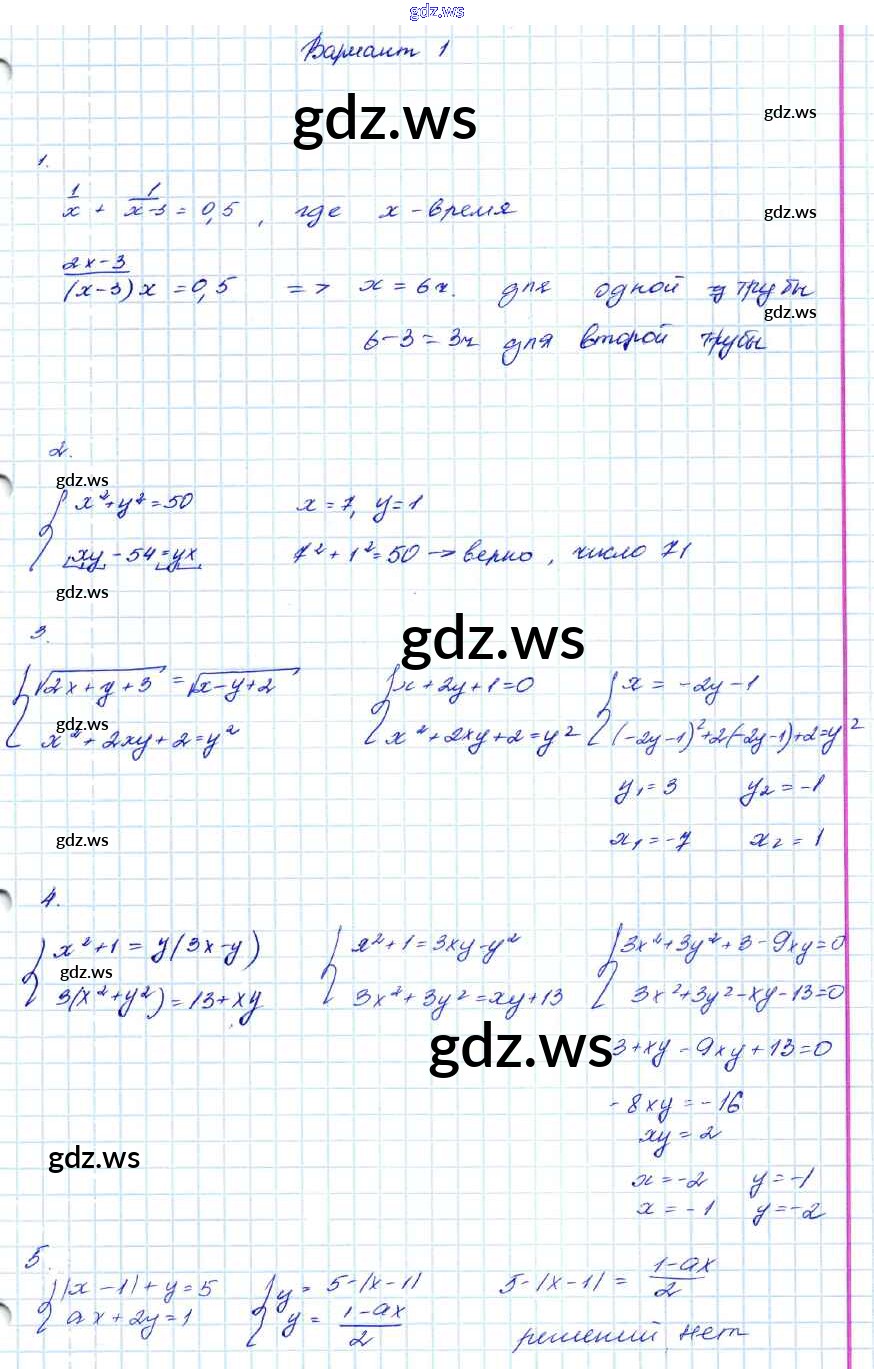 gdz.ws
Вариант 1
gdz.ws
gdz.ws
1.
1/x + 1/(x-3) = 0,5, где x - время
gdz.ws
(2x-3)/((x-3)x) = 0,5 => x = 6ч. для одной трубы
gdz.ws
6-3 = 3ч для второй трубы
2.
gdz.ws
{ x²+y² = 50 x = 7, y = 1
xy - 54 = yx 7² + 1² = 50 → верно, число 71
gdz.ws
3.
gdz.ws
{ √(2x+y+3) = √(x-y+2) { x + 2y + 1 = 0 { x = -2y - 1
gdz.ws
x² + 2xy + 2 = y² x² + 2xy + 2 = y² (-2y-1)² + 2(-2y-1) + 2 = y²
y₁ = 3 y₂ = -1
gdz.ws
x₁ = -7 x₂ = 1
4.
{ x² + 1 = y(3x-y) { x² + 1 = 3xy - y² { 3x² + 3y² + 3 - 9xy = 0
gdz.ws
3(x²+y²) = 13 + xy 3x² + 3y² = xy + 13 3x² + 3y² - xy - 13 = 0
gdz.ws
3 + xy - 9xy + 13 = 0
-8xy = -16
xy = 2
gdz.ws
x = -2 y = -1
x = -1 y = -2
5.
{ |x-1| + y = 5 { y = 5 - |x-1| 5 - |x-1| = (1-ax)/2
ax + 2y = 1 y = (1-ax)/2
решений нет